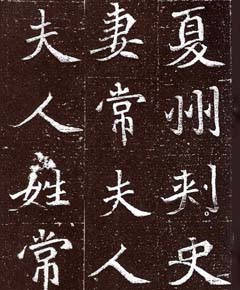 夏州刺史
妻常夫人
夫人姓常